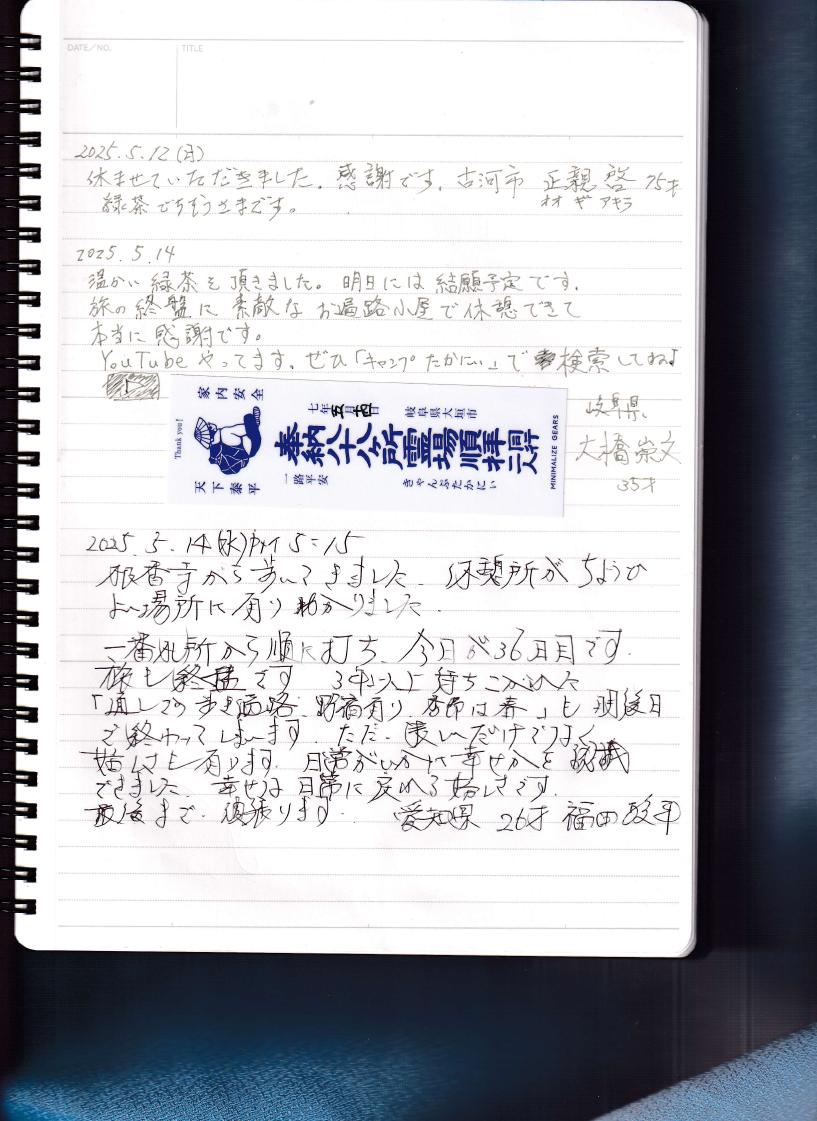 DATE/NO. TITLE
2025.5.12(月)
休ませていただきました。感謝です。古河市 正親 啓 75才
オオギ アキラ
緑茶でちそうさまです。
2025.5.14
温かい緑茶を頂きました。明日には結願予定です。
旅の終盤に素敵なお遍路小屋で休憩できて
本当に感謝です。
YouTubeやってます。ぜひ「キャンプたかにい」で検索してね♪
岐阜県
大橋崇文
35才
家内安全
Thank you!
天下泰平
七年五月十四日
岐阜県大垣市
奉納八十八ヶ所霊場順拝同行二人
一路平安
きゃんぷたかにい
MINIMALIZE GEARS
2025.5.14(水) 15:15
根香寺から歩いてきました。休憩所がちょうど
よい場所に有り助かりました。
一番札所から順に打ち、今日が36日目です。
旅も終盤です 3年以上持ちこがれた
「通しでの歩き遍路、野宿有り、季節は春」も明後日
で終わってしまいます。ただ、哀しいだけでなく
嬉しさも有ります。日常がいかに幸せかを認識
できました。幸せな日常に戻れる嬉しさです。
最後まで頑張ります。 愛知県 26才 福田